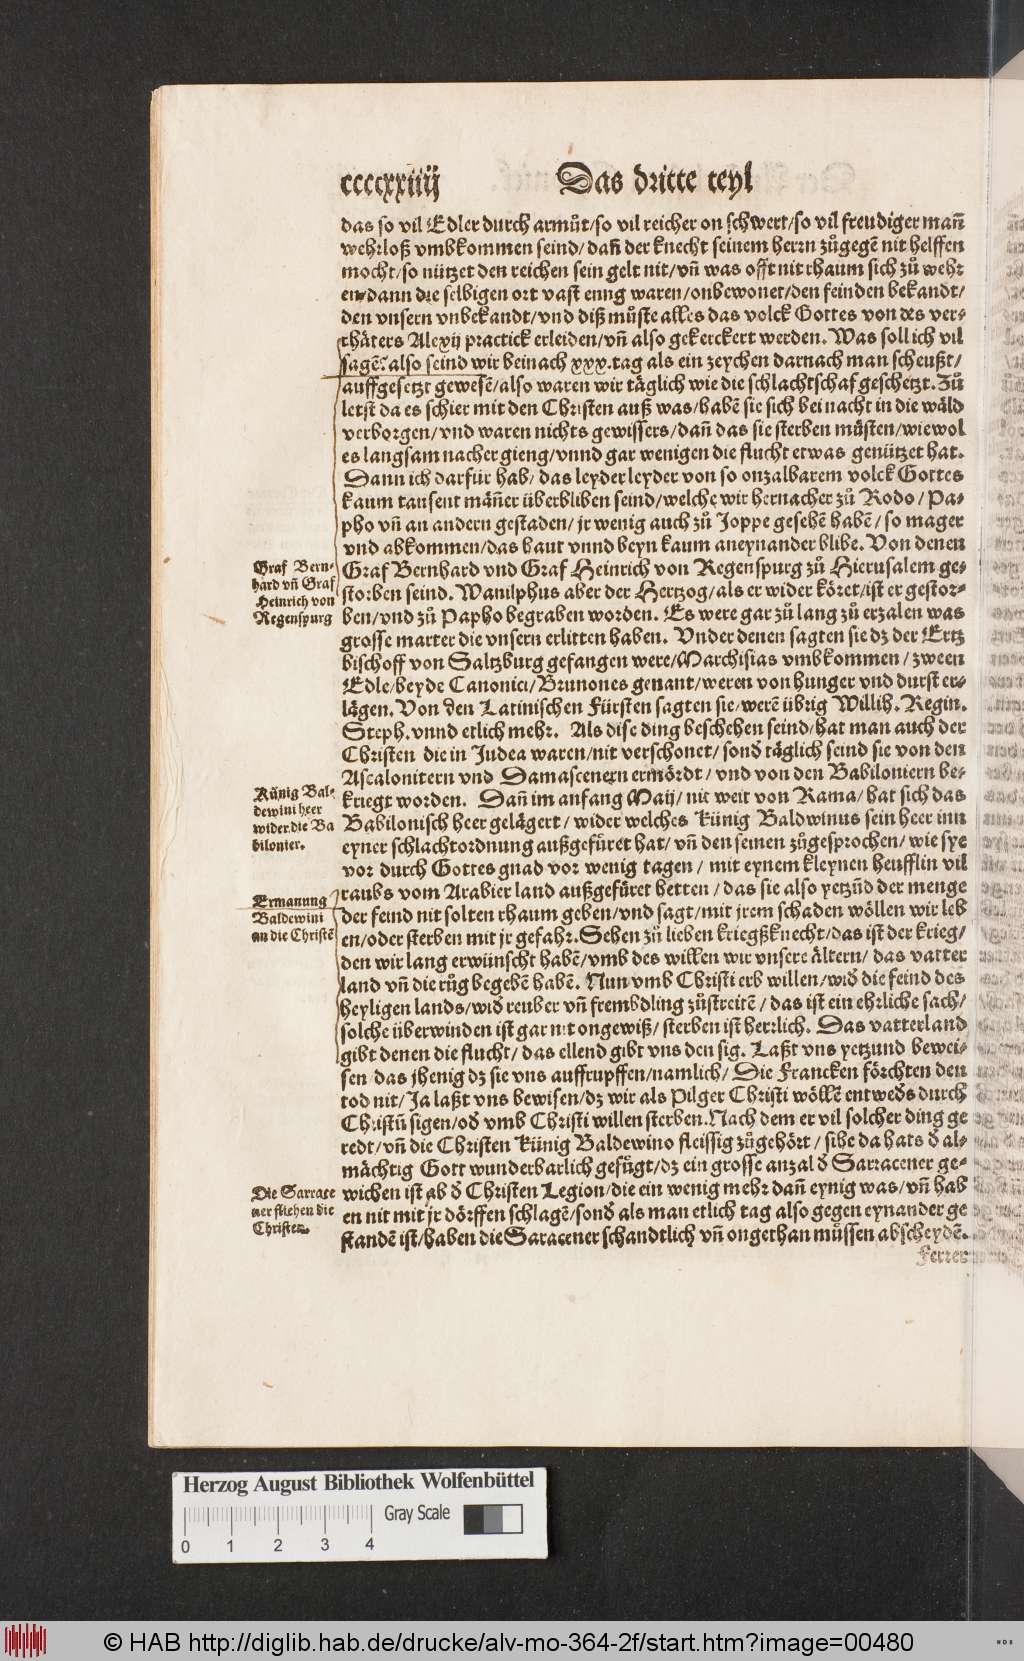 ccccxxiiij
Das dritte teyl
das so vil Edler durch armůt/so vil reicher on schwert/so vil freudiger mañ
wehrloß vmbkommen seind/dañ der knecht seinem herrn zůgegẽ nit helffen
mocht/so nützet den reichen sein gelt nit/vñ was offt nit rhaum sich zů wehr
en/dann die selbigen ort vast enng waren/onbewonet/den feinden bekandt/
den vnsern vnbekandt/vnd diß můste alles das volck Gottes von des ver-
rhäters Alexij practick erleiden/vñ also gekerckert werden. Was soll ich vil
sagẽ? also seind wir beinach xxx.tag als ein zeychen darnach man scheußt/
auffgesetzt gewesẽ/also waren wir täglich wie die schlachtschaf geschetzt. Zů
letst da es schier mit den Christen auß was/habẽ sie sich bei nacht in die wäld
verborgen/vnd waren nichts gewissers/dañ das sie sterben můsten/wiewol
es langsam nacher gieng/vnnd gar wenigen die flucht etwas genützet hat.
Dann ich darfür hab/das leyder leyder von so onzalbarem volck Gottes
kaum tausent mäñer überbliben seind/welche wir hernacher zů Rodo/Pa-
pho vñ an andern gestaden/jr wenig auch zů Joppe gesehẽ habẽ/so mager
vnd abkommen/das haut vnnd beyn kaum aneynander blibe. Von denen
Graf Bernhard vnd Graf Heinrich von Regenspurg zů Hierusalem ge-
storben seind. Wanilphus aber der Hertzog/als er wider köret/ist er gestor-
ben/vnd zů Papho begraben worden. Es were gar zů lang zů erzalen was
grosse marter die vnsern erlitten haben. Vnder denen sagten sie dz der Ertz
bischoff von Saltzburg gefangen were/Marchisias vmbkommen/zween
Edle/beyde Canonici/Brunones genant/weren von hunger vnd durst er-
lägen. Von den Latinischen Fürsten sagten sie/werẽ übrig Willih. Regin.
Steph. vnnd etlich mehr. Als dise ding beschehen seind/hat man auch der
Christen die in Judea waren/nit verschonet/sonđ täglich seind sie von den
Ascalonitern vnd Damascenern ermördt/vnd von den Babiloniern be-
kriegt worden. Dañ im anfang Maij/nit weit von Rama/hat sich das
Babilonisch heer gelägert/wider welches Künig Baldwinus sein heer inn
eyner schlachtordnung außgefůret hat/vñ den seinen zůgesprochen/wie sye
vor durch Gottes gnad vor wenig tagen/mit eynem kleynen heufflin vil
raubs vom Arabier land außgefůret hetten/das sie also yetzũd der menge
der feind nit solten rhaum geben/vnd sagt/mit jrem schaden wöllen wir leb
en/oder sterben mit jr gefahr. Sehen zů lieben kriegßknecht/das ist der krieg/
den wir lang erwünscht habẽ/vmb des willen wir vnsere ältern/das vatter
land vñ die růg begebẽ habẽ. Nun vmb Christi erb willen/wiđ die feind des
heyligen lands/wiđ reuber vñ frembdling zůstreitẽ/das ist ein ehrliche sach/
solche überwinden ist gar nit ongewiß/sterben ist herzlich. Das vatterland
gibt denen die flucht/das ellend gibt vns den sig. Laßt vns yetzund bewei-
sen das jhenig dz sie vns auffrupffen/namlich/Die Francken förchten den
tod nit/Ja laßt vns bewisen/dz wir als Pilger Christi wöllẽ entweđs durch
Christũ sigen/ođ vmb Christi willen sterben. Nach dem er vil solcher ding ge
redt/vñ die Christen Künig Baldewino fleissig zůgehört/sihe da hats đ al-
mächtig Gott wunderbarlich gefůgt/dz ein grosse anzal đ Sarracener ge-
wichen ist ab đ Christen Legion/die ein wenig mehr dañ eynig was/vñ hab
en nit mit jr dörffen schlagẽ/sonđ als man etlich tag also gegen eynander ge
standẽ ist/haben die Saracener schandtlich vñ ongethan můssen abscheydẽ.
Ferrer
Graf Bern-
hard vñ Graf
Heinrich von
Regenspurg
Künig Bal-
dewini heer
wider die Ba
bilonier.
Ermanung
Baldewini
an die Christẽ
Die Sarrace
ner fliehen die
Christen.
Herzog August Bibliothek Wolfenbüttel
Gray Scale
0 1 2 3 4
© HAB http://diglib.hab.de/drucke/alv-mo-364-2f/start.htm?image=00480